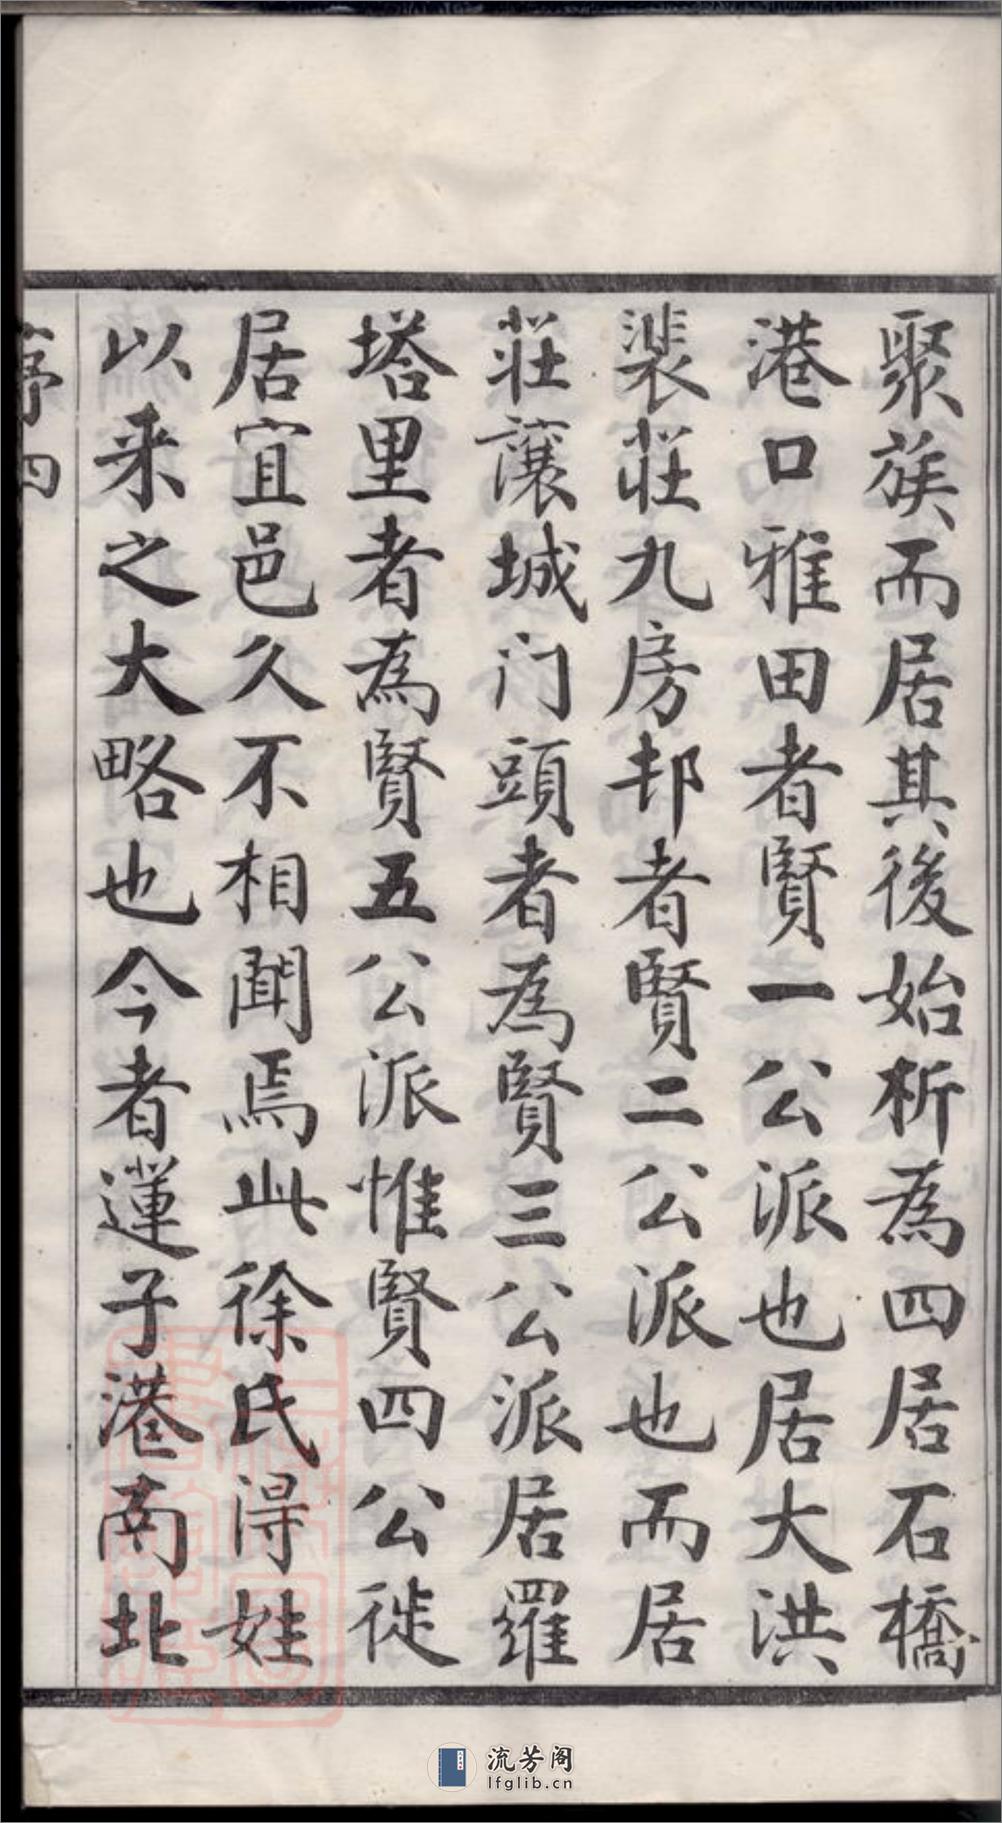 聚族而居其後始析為四居石橋
港口雅田者賢一公派也居大洪
裴莊九房邨者賢二公派也而居
莊讓城门頭者為賢三公派居羅
塔里者為賢五公派惟賢四公徙
居宜邑久不相聞焉此徐氏得姓
以来之大略也今者蓮子港南北
序四
流芳阁
lfglib.cn